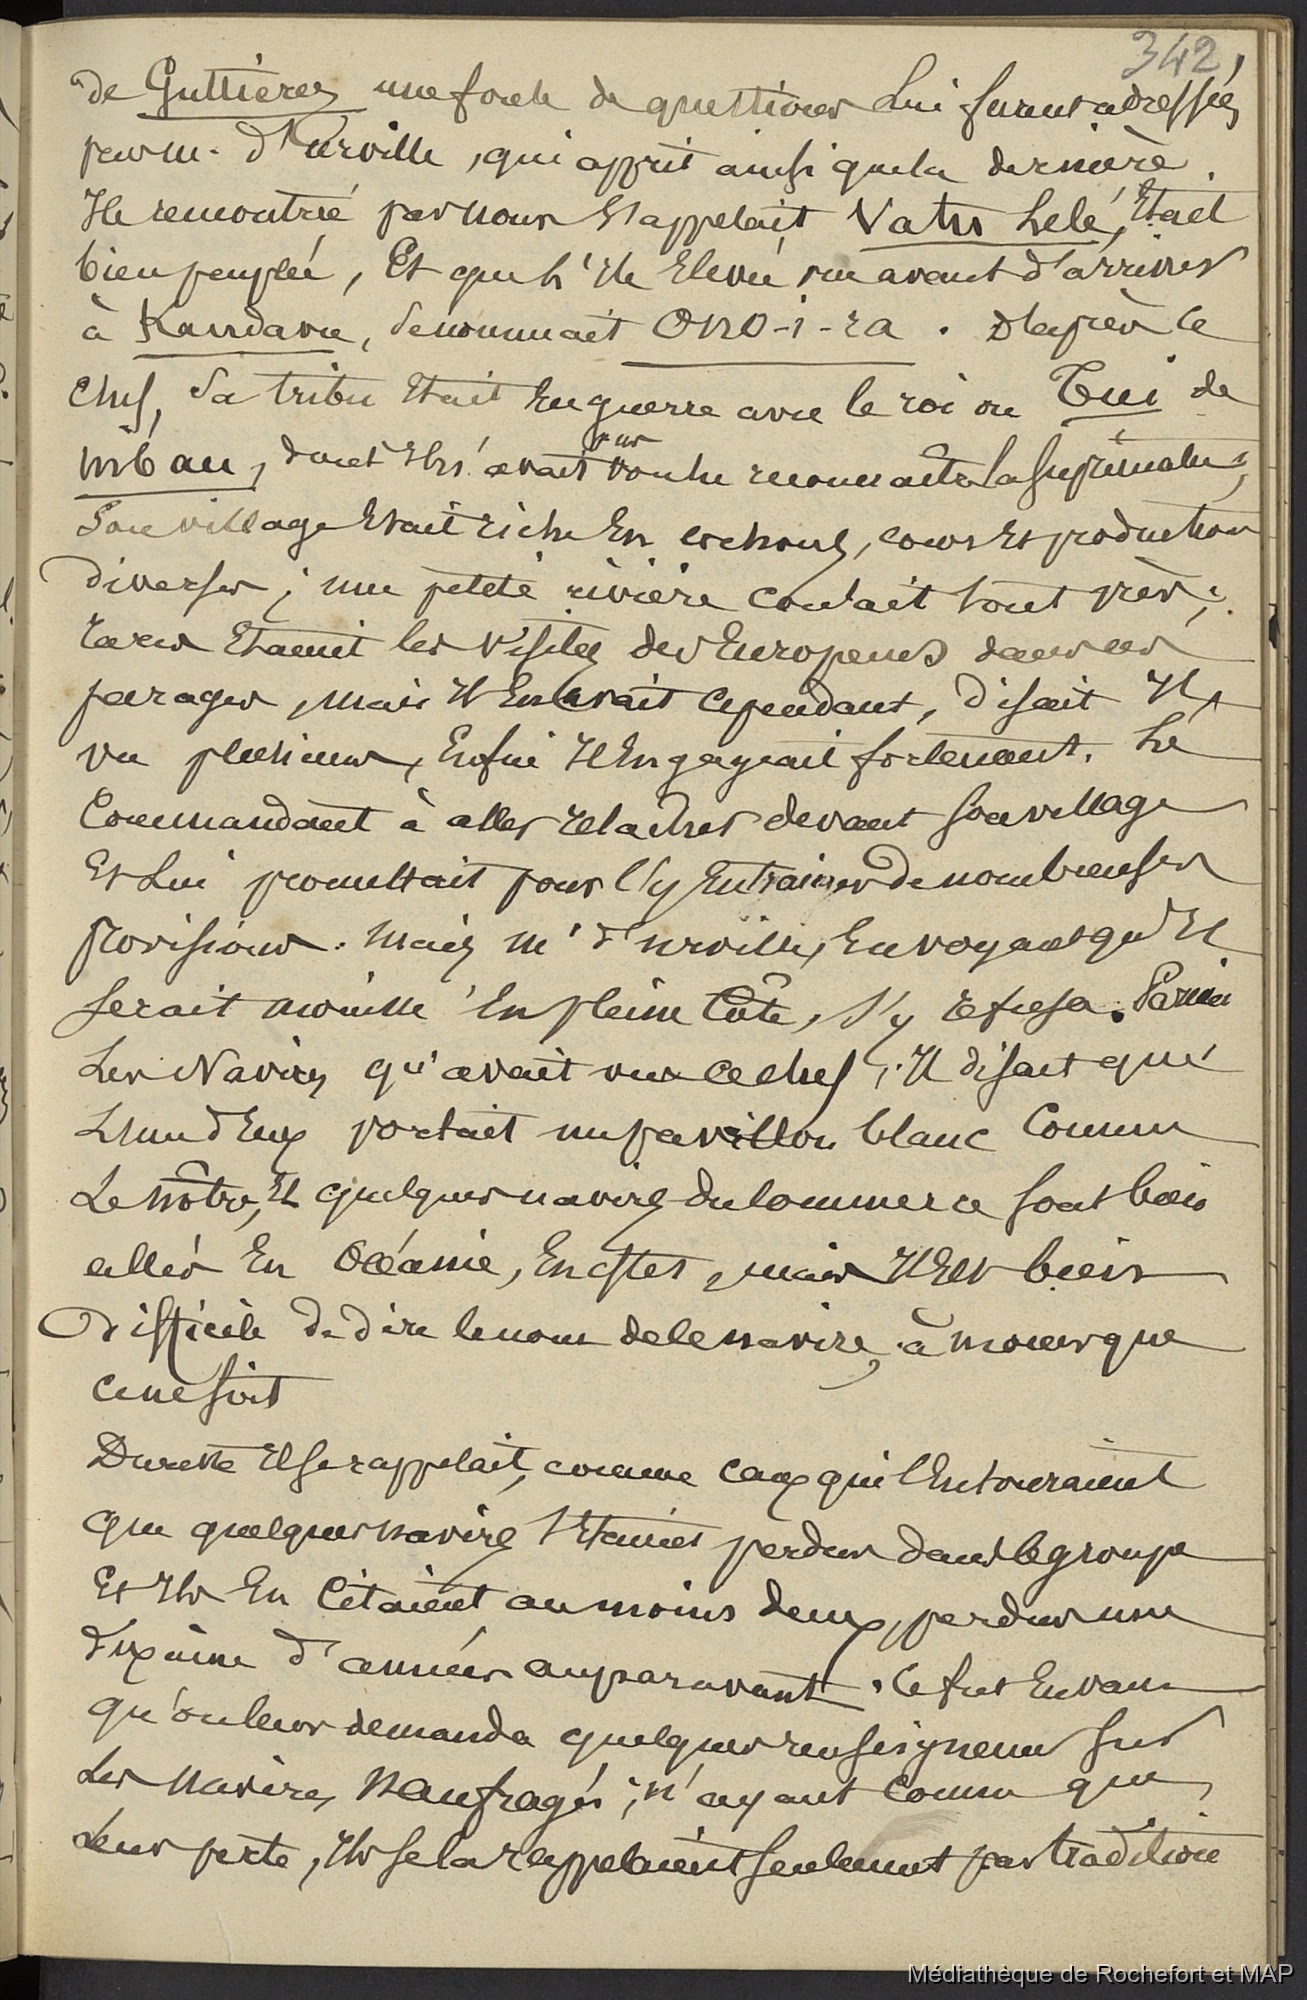 342
de Guttierez une foule de questions lui furent adressées
par M. d'Urville, qui apprit ainsi que la dernière
Ile rencontrée par nous s'appelait Vatu Lelé, Etait
bien peuplée, Et que l'Ile Elevée vue avant d'arriver
à Kandavu, se nommait Ono-i-ra. D'après ce
chef, Sa tribu Etait En guerre avec le roi ou Tui de
Mbau, dont Ils n'avait pas voulu reconnaître la suprématie;
Son village Etait riche En cochons, cocos Et production
diverses; une petite rivière coulait tout près;
rares Etaient les visites des Européens dans ces
parages, mais Il En avait cependant, disait Il,
vu plusieurs, Enfin Il Engageait fortement le
Commandant à aller relacher devant son village
Et Lui promettait pour l'y Entrainer de nombreuses
provisions. Mais M. d'Urville, En voyant qu'Il
serait mouillé En pleine Côte, s'y refusa. Parmi
Les Navires qu'avait vus ce chef, Il disait que
L'un d'Eux portait un pavillon blanc Comme
Le nôtre, Et quelques navires du Commerce sont bien
allés En Océanie, En effet, mais Il Est bien
difficile de dire le nom de le navire, à moins que
ce ne soit
Du reste Il se rappelait, comme ceux qui l'Entouraient
que quelques navires s'Etaient perdus dans le groupe
Et Ils En Citaient au moins deux, perdus une
dixaine d'années auparavant. Ce fut En vain
qu'on leur demanda quelques renseignemen sur
Les navires Naufragés; n'ayant connu que
Leur perte, Ils se la rappelaient seulement par tradition
Médiathèque de Rochefort et MAP